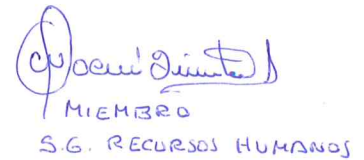 MIEMBRO
S.G. RECURSOS HUMANOS